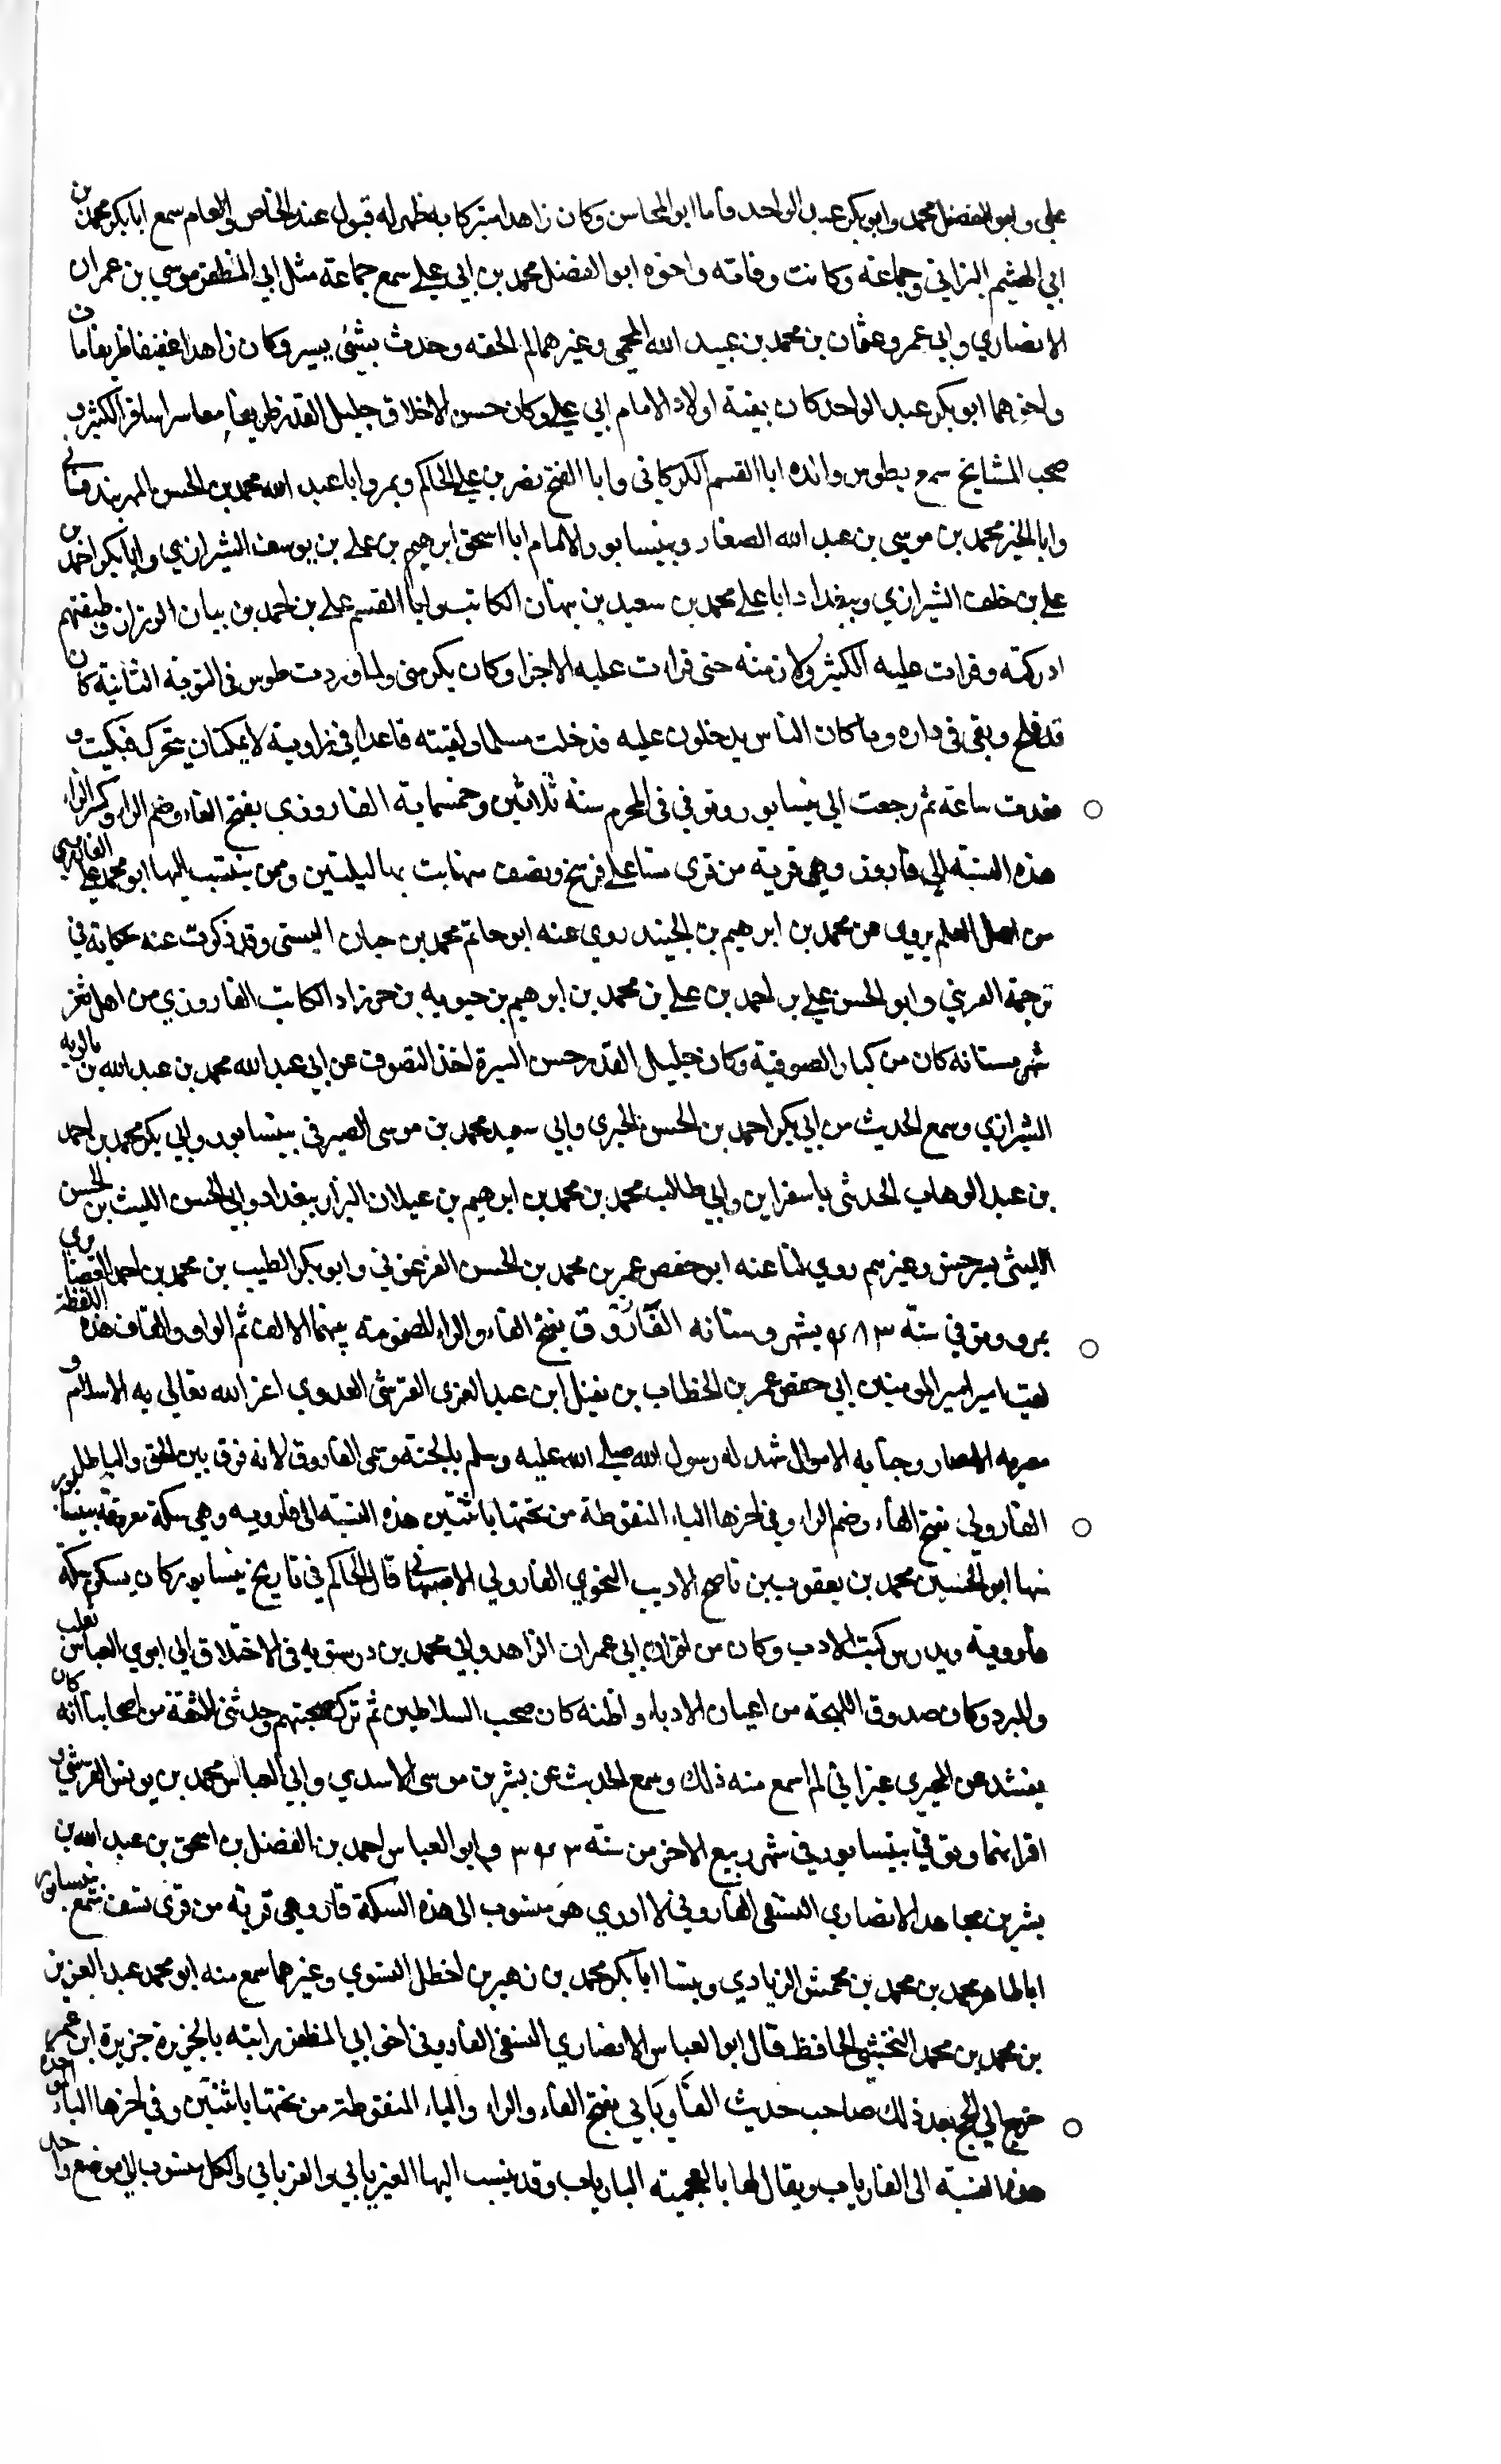 علي وابو الفضل محمد وابو بكر عبد الواحد فاما ابو المحاسن وكان زاهدا متبركا به ظهر له قبول عند الخاص والعام سمع ابا بكر محمد بن
ابي الهيثم الترابي وجماعة وكانت وفاته واخوه ابو الفضل محمد بن ابي علي سمع جماعة مثل ابي المظفر موسي بن عمران
الانصاري وابي عمرو عثمان بن محمد بن عبيد الله المحمي وغيرهما لم الحقه وحدث بشئ يسير وكان زاهدا عفيفا ظريفا مات
واخوهما ابو بكر عبد الواحد كان بقية اولاد الامام ابي علي وكان حسن الاخلاق جليل القدر ظريفا معاسرا سافر الكثير و
صحب المشايخ سمع بطوس والده ابا القسم الكركاني وابا الفتح نصر بن علي الحاكم وبمرو ابا عبد الله محمد بن الحسن المهربندقشاني
وابا الخير محمد بن موسي بن عبد الله الصفار وبنيسابور الامام ابا اسحق ابرهيم بن علي بن يوسف الشيرازي وابا بكر احمد بن
علي بن خلف الشيرازي وببغداد ابا علي محمد بن سعيد بن نبهان الكاتب وابا القسم علي بن احمد بن بيان الرزاز وطبقتهم
ادركته وقرات عليه الكثير ولازمته حتي قرات عليه الاجزا وكان يكرمني ولما وردت طوس في النوبة الثانية كان
قد فلج وبقي في داره وما كان الناس يدخلون عليه فدخلت مسلما ولقيته قاعدا في زاوية لا يمكنان يتحرك فبكيت و
قعدت ساعة ثم رجعت الي نيسابور وتوفي في المحرم سنة ثلاثين وخمسماية الفاروزي بفتح الفاء وضم الراء وكسر الزاء
هذه النسبة الي فاروز وهي قرية من قري نسا علي فرسخ ونصف منها بت بها ليلتين وممن ينتسب اليها ابو محمد علي الفارسي
من اهل العلم يروي عن محمد بن ابرهيم بن الجنيد روي عنه ابو حاتم محمد بن حبان البستي وقد ذكرت عنه حكاية في
ترجمة العرني وابو الحسن علي بن احمد بن علي بن محمد بن ابرهيم بن حيويه بن خرزاد الكاتب الفاروزي من اهل ثغر
شهرستانه كان من كبار الصوفية وكان جليل القدر حسن السيرة اخذ التصوف عن ابي عبد الله محمد بن عبد الله بن باكويه
الشيرازي وسمع الحديث من ابي بكر احمد بن الحسن الحيري وابي سعيد محمد بن موسي الصيرفي بنيسابور وابي بكر محمد بن احمد
بن عبد الوهاب الحدثي باسفراين وابي طالب محمد بن محمد بن ابرهيم بن غيلان البزاز ببغداد وابي الحسن الليث بن الحسن
الليثي بسرخس وغيرهم روي لنا عنه ابو حفص عمر بن محمد بن الحسن الفرغوني وابو بكر الطيب بن محمد بن احمد الغضايري
بمرو وتوفي في سنة ٤٨٣ بشهرستانه الفاروق بفتح الفاء والراء المضمومة بينهما الالف ثم الواو والقاف هذه اللفظة
لقب امير المومنين ابي حفص عمر بن الخطاب بن نفيل ابن عبد العزي القرشي العدوي اعز الله تعالي به الاسلام و
مصر به الامصار وجبا به الاموال شهد له رسول الله صلي الله عليه وسلم بالجنة وسمي الفاروق لانه فرق بين الحق والباطل
الفارويي بفتح الفاء وضم الراء وفي اخرها الياء المنقوطة من تحتها باثنتين هذه النسبة الي فارويه وهي سكة معروفة بنيسابور
منها ابو الحسين محمد بن يعقوب بن ناصح الاديب النحوي الفارويي الاصبهاني قال الحاكم في تاريخ نيسابور كان يسكن سكة
فارويه ويدرس كتب الادب وكان من اقران ابي عمران الزاهد وابي محمد بن درستويه في الاختلاف الي ابوي العباس ثعلب
والمبرد وكان صدوق اللهجة من اعيان الادباء واظنه كان صحب السلاطين ثم ترك صحبتهم وحدثني الثقة من اصحابنا انه كان
ينشد عن البحتري غير اني لم اسمع منه ذلك وسمع الحديث عن بشر بن موسي الاسدي وابي العباس محمد بن يونس القرشي و
اقرانهما وتوفي بنيسابور في شهر ربيع الاخر من سنة ٣٤٣ وابو العباس احمد بن الفضل بن اسحق بن عبد الله بن
بشر بن مجاهد الانصاري النسفي الفارويي لا ادري هو منسوب الي هذه السكة فارو هي قرية من قري نسف سمع بنيسابور
ابا طاهر محمد بن محمد بن محمش الزيادي وبنسا ابا بكر محمد بن زهير بن اخطل النسوي وغيرهما سمع منه ابو محمد عبد العزيز
بن محمد بن محمد النخشبي الحافظ قال ابو العباس الانصاري النسفي الفارويي اخو ابي المظفر رايته بالجزيرة جزيرة ابن عمر
خرج الي الحج بعد ذلك صاحب حديث الفاريابي بفتح الفاء والراء والياء المنقوطة من تحتها باثنتين وفي اخرها الباء الموحدة
هذه النسبة الي الفارياب ويقال لها بالعجمية البارياب وقد ينسب اليها الفيريابي والفريابي والكل منسوب الي موضع واحد